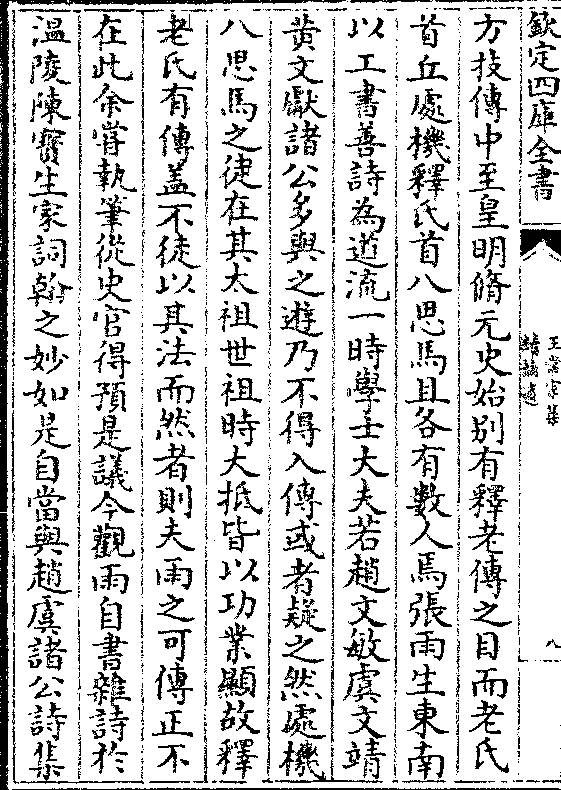 欽定四庫全書
王常宗集
補遺
八
方技傳中至皇明脩元史始別有釋老傳之目而老氏
首丘處機釋氏首八思馬且各有數人焉張雨生東南
以工書善詩為道流一時學士大夫若趙文敏虞文靖
黄文獻諸公多與之遊乃不得入傳或者疑之然處機
八思馬之徒在其太祖世祖時大抵皆以功業顯故釋
老氏有傳盖不徒以其法而然者則夫雨之可傳正不
在此余嘗執筆從史官得預是議今觀雨自書雜詩於
温陵陳寳生家詞翰之妙如是自當與趙虞諸公詩集